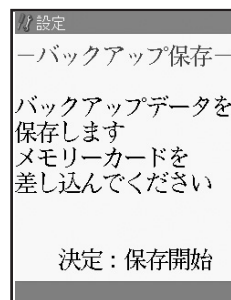 設定
－バックアップ保存－
バックアップデータを
保存します
メモリーカードを
差し込んでください
決定：保存開始